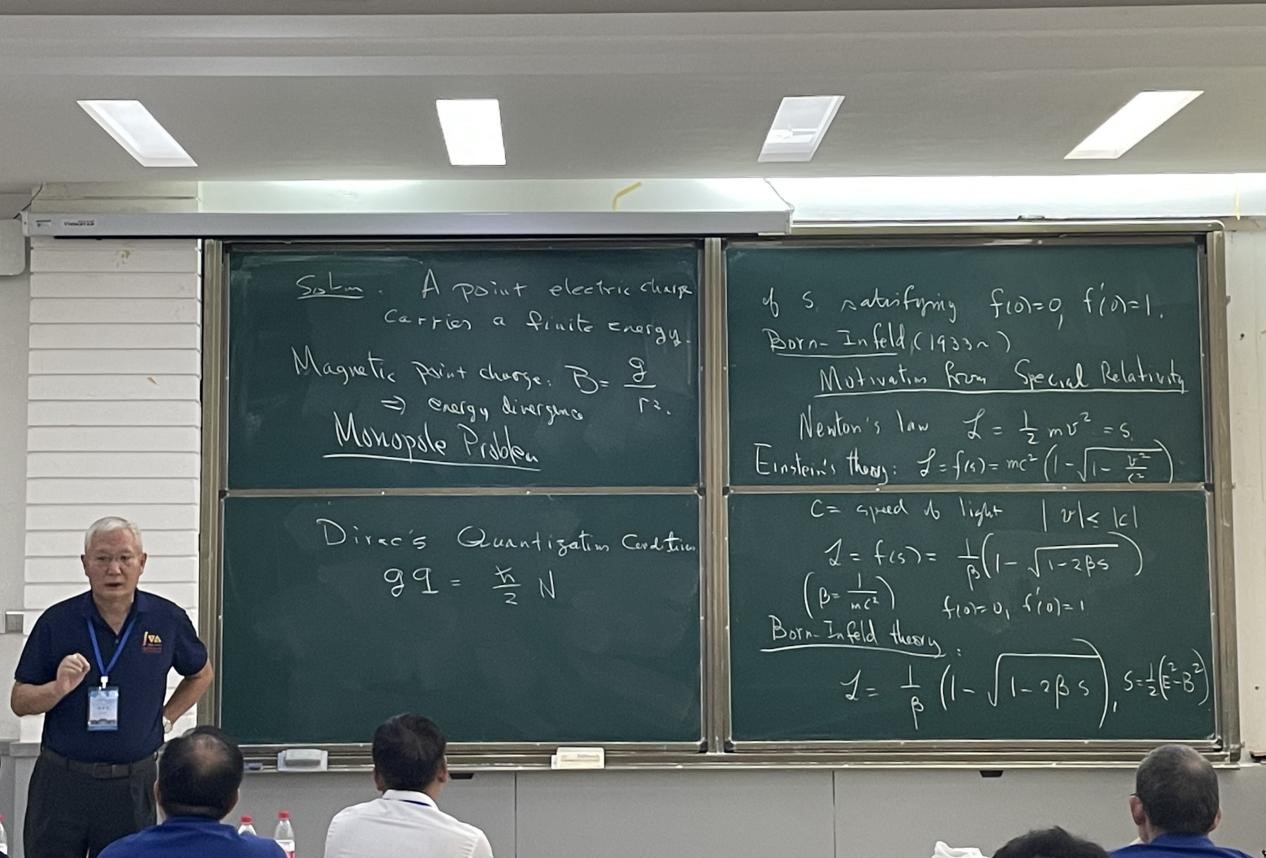 Soln. A point electric charge
carries a finite energy.
Magnetic point charge: B = g/r².
⇒ energy divergence
Monopole Problem
Dirac's Quantization Condition
gq = ħ/2 N
of s satisfying f(0)=0, f'(0)=1.
Born-Infeld (1933~)
Motivation from Special Relativity
Newton's law ℒ = 1/2 mv² = s
Einstein's theory: ℒ = f(s) = mc² (1-√(1- v²/c²))
c = speed of light |v| ≤ |c|
ℒ = f(s) = 1/β (1-√(1-2βs))
(β = 1/mc²) f(0)=0, f'(0)=1
Born-Infeld theory:
ℒ = 1/β (1-√(1-2βs)), s=1/2(E²-B²)